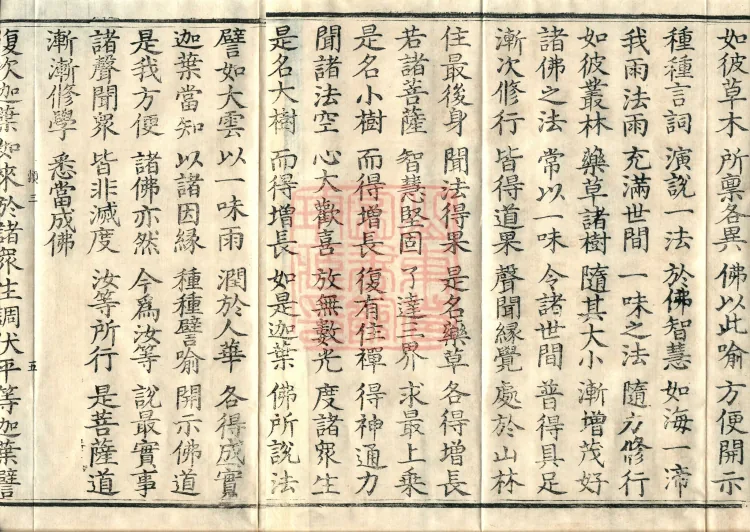 如彼草木 所稟各異 佛以此喻 方便開示
種種言詞 演說一法 於佛智慧 如海一渧
我雨法雨 充滿世間 一味之法 隨力修行
如彼叢林 藥草諸樹 隨其大小 漸增茂好
諸佛之法 常以一味 令諸世間 普得具足
漸次修行 皆得道果 聲聞緣覺 處於山林
住最後身 聞法得果 是名藥草 各得增長
若諸菩薩 智慧堅固 了達三界 求最上乘
是名小樹 而得增長 復有住禪 得神通力
聞諸法空 心大歡喜 放無數光 度諸眾生
是名大樹 而得增長 如是迦葉 佛所說法
譬如大雲 以一味雨 潤於人華 各得成實
迦葉當知 以諸因緣 種種譬喻 開示佛道
是我方便 諸佛亦然 今爲汝等 說最實事
諸聲聞眾 皆非滅度 汝等所行 是菩薩道
漸漸修學 悉當成佛
三 五
復次迦葉如來於諸眾生調伏平等迦葉譬